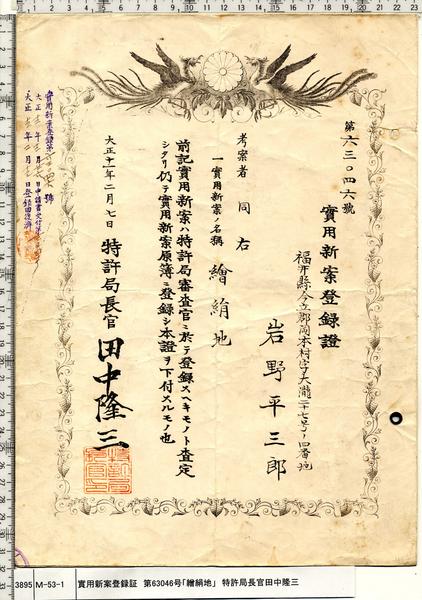 第六三〇四六號
實用新案登録證
福井縣今立郡岡本村字大瀧二十七号ノ四番地
岩野平三郎
考案者 同右
一實用新案ノ名稱 繪絹地
前記實用新案ハ特許局審査官ニ於テ登録スヘキモノト査定
シタリ仍テ實用新案原簿ニ登録シ本證ヲ下付スルモノ也
大正十一年二月七日
特許局長官 田中隆三
3895 M-53-1 實用新案登録証 第63046号「繪絹地」 特許局長官田中隆三